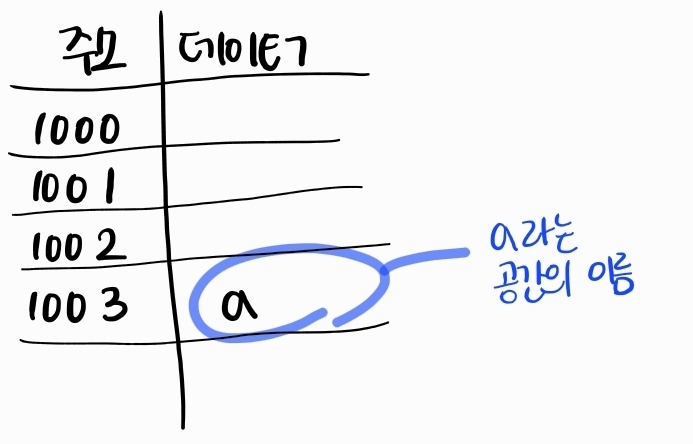 주소 데이터
1000
1001
1002
1003 a
a라는
공간의 이름